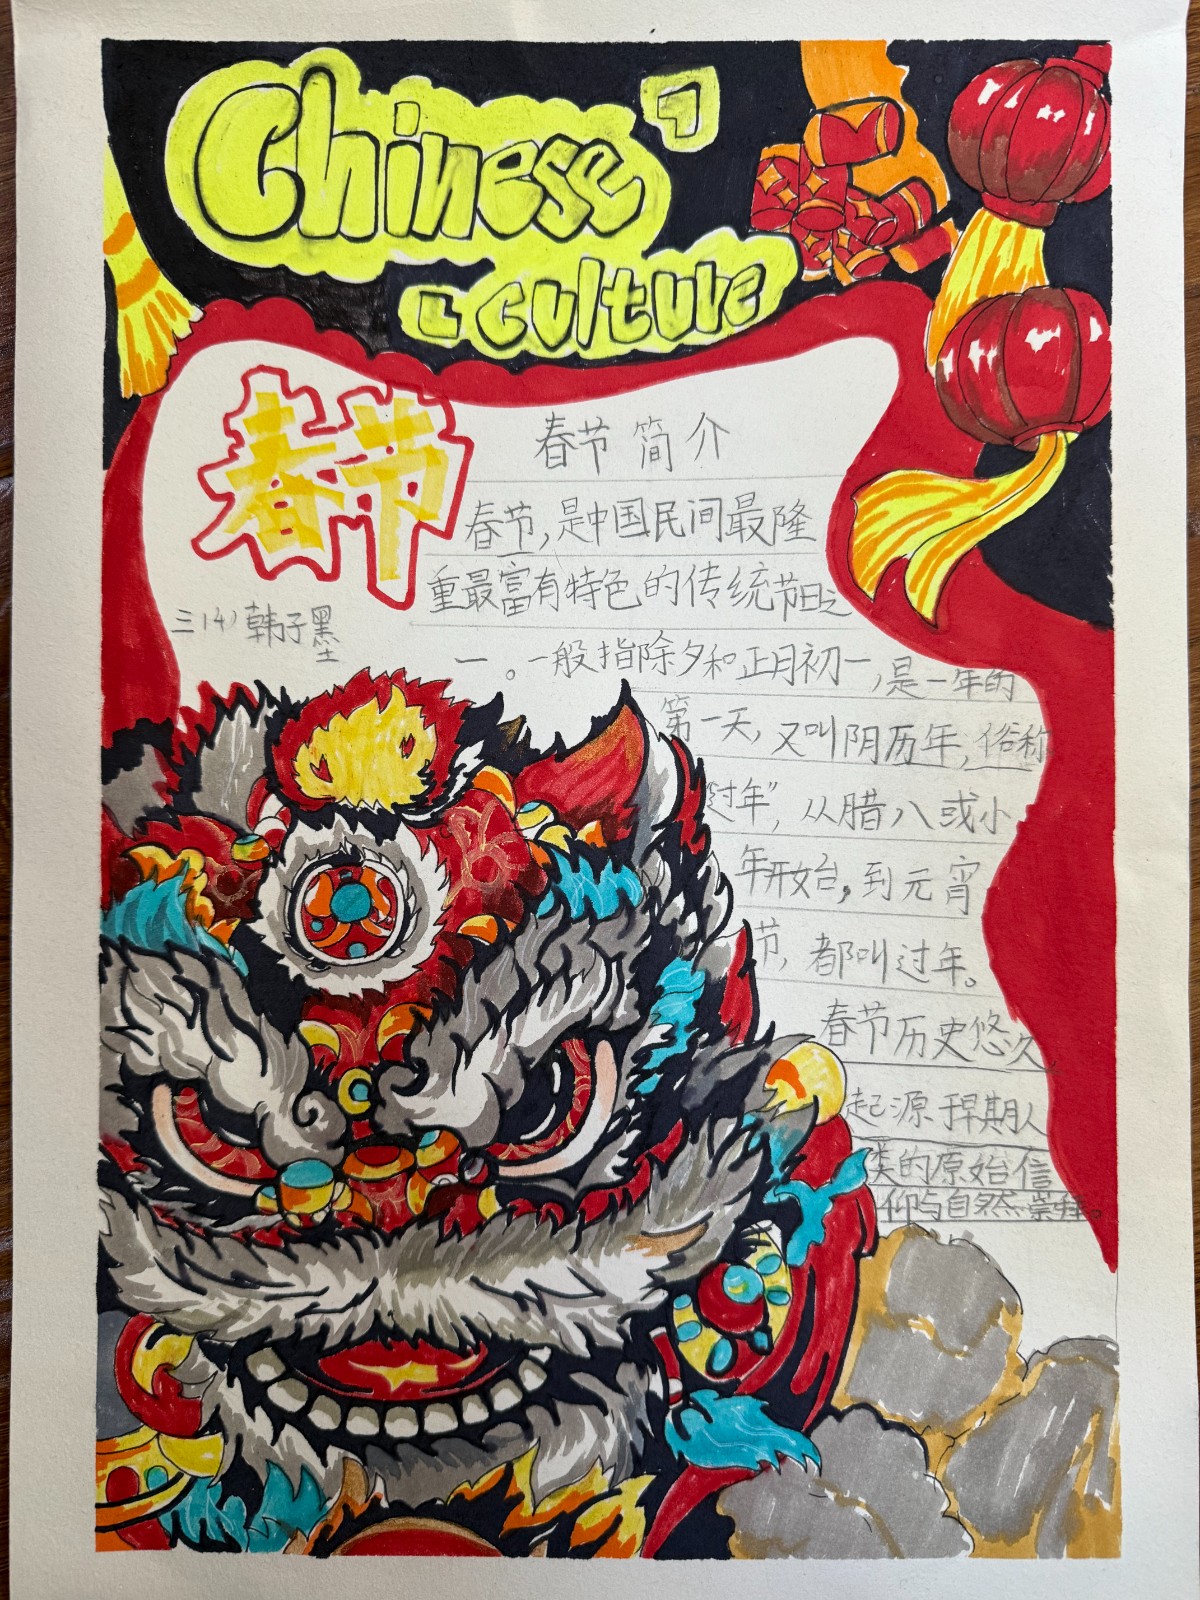 Chinese
culture
春节
春节简介
春节,是中国民间最隆
重最富有特色的传统节日之
三(4)韩子墨
一。一般指除夕和正月初一,是一年的
第一天,又叫阴历年,俗称
“过年”,从腊八或小
年开始,到元宵
节,都叫过年。
春节历史悠久
起源于早期人
类的原始信
仰与自然崇拜。